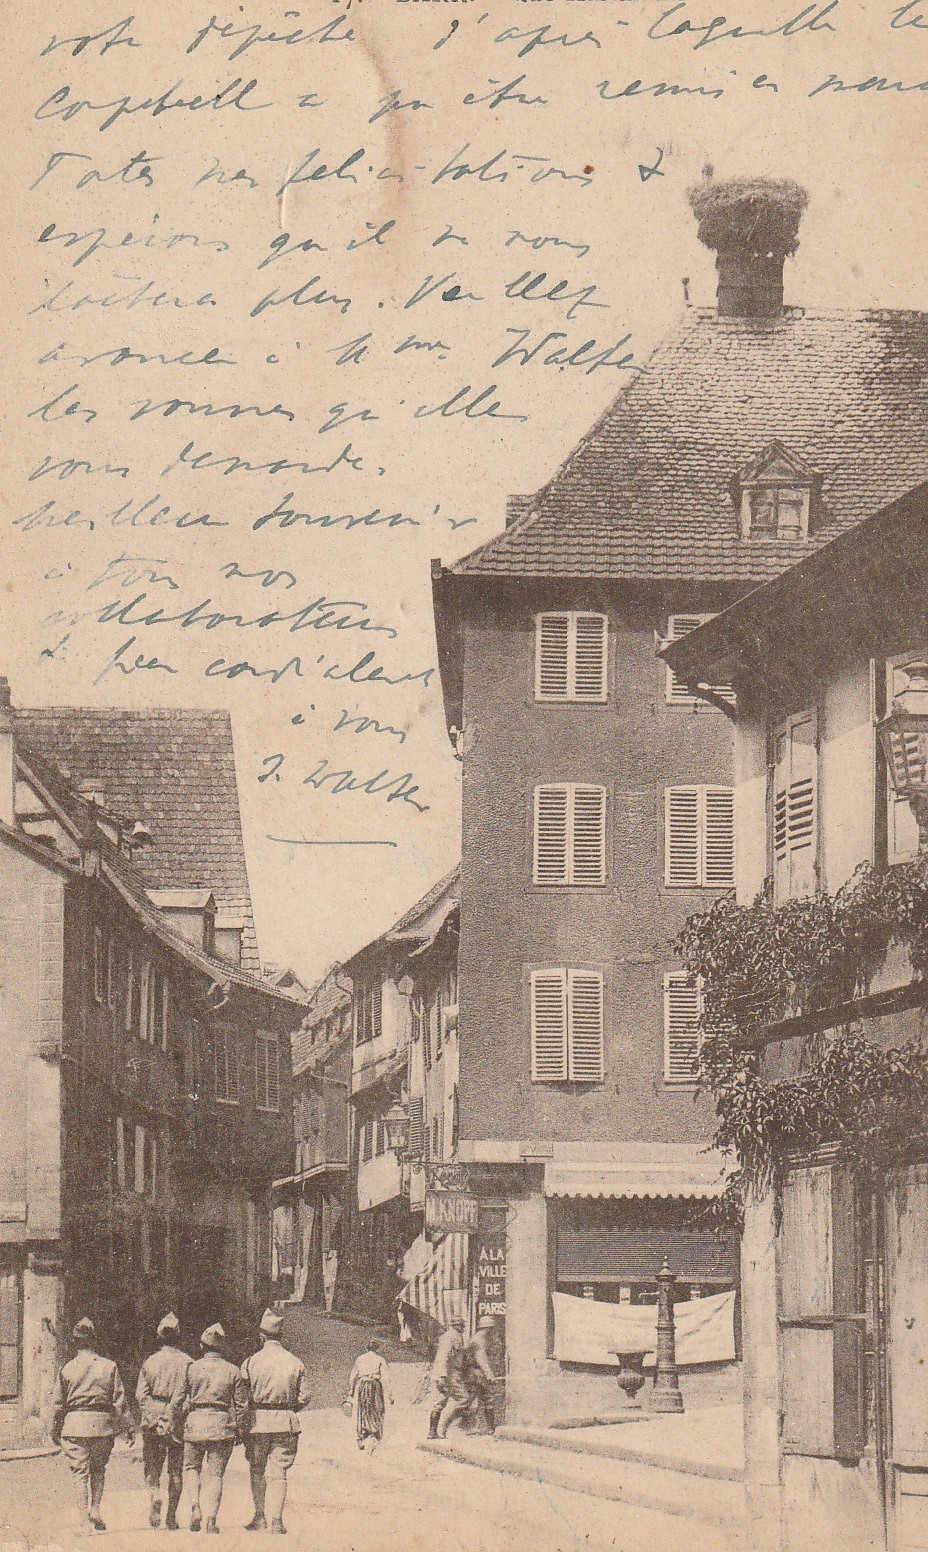 votre dépêche d'après laquelle le
a pu être remis en
Toutes nos félicitations &
espérons qu'il ne vous
plus. Veuillez
avancer à Mme Walter
les vounes qu'elle
vous demande.
Meilleurs souvenirs
à tous nos
collaborateurs
& bien cordialement
à vous
J. Walter
À LA
VILLE
DE
PARIS